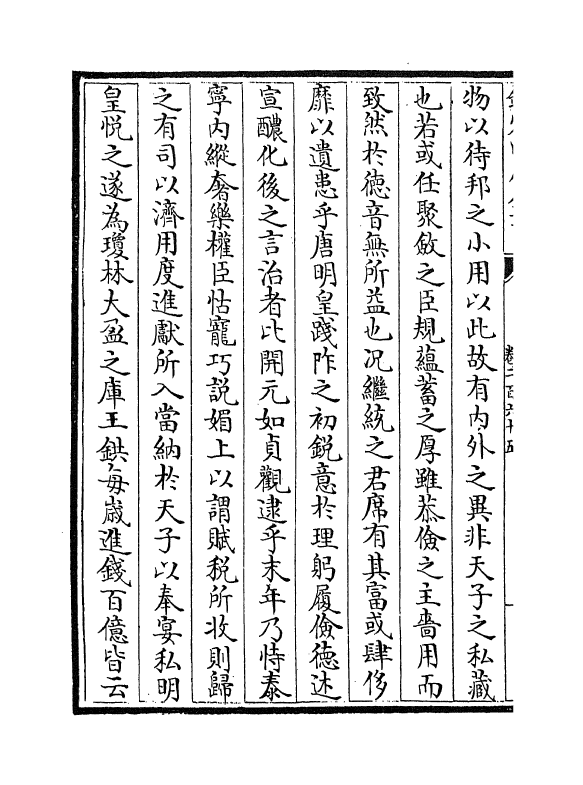 卷二百六十五
物以待邦之小用以此故有内外之異非天子之私藏
也若或任聚斂之臣規蘊蓄之厚雖恭儉之主嗇用而
致然於徳音無所益也况繼統之君席有其富或肆侈
靡以遺患乎唐明皇踐阼之初鋭意於理躬履儉徳述
宣醲化後之言治者比開元如貞觀逮乎末年乃恃泰
寧内縱奢樂權臣怙寵巧説媚上以謂賦税所收則歸
之有司以濟用度進獻所入當納於天子以奉宴私明
皇悦之遂為瓊林大盈之庫王鉷每歳進錢百億皆云